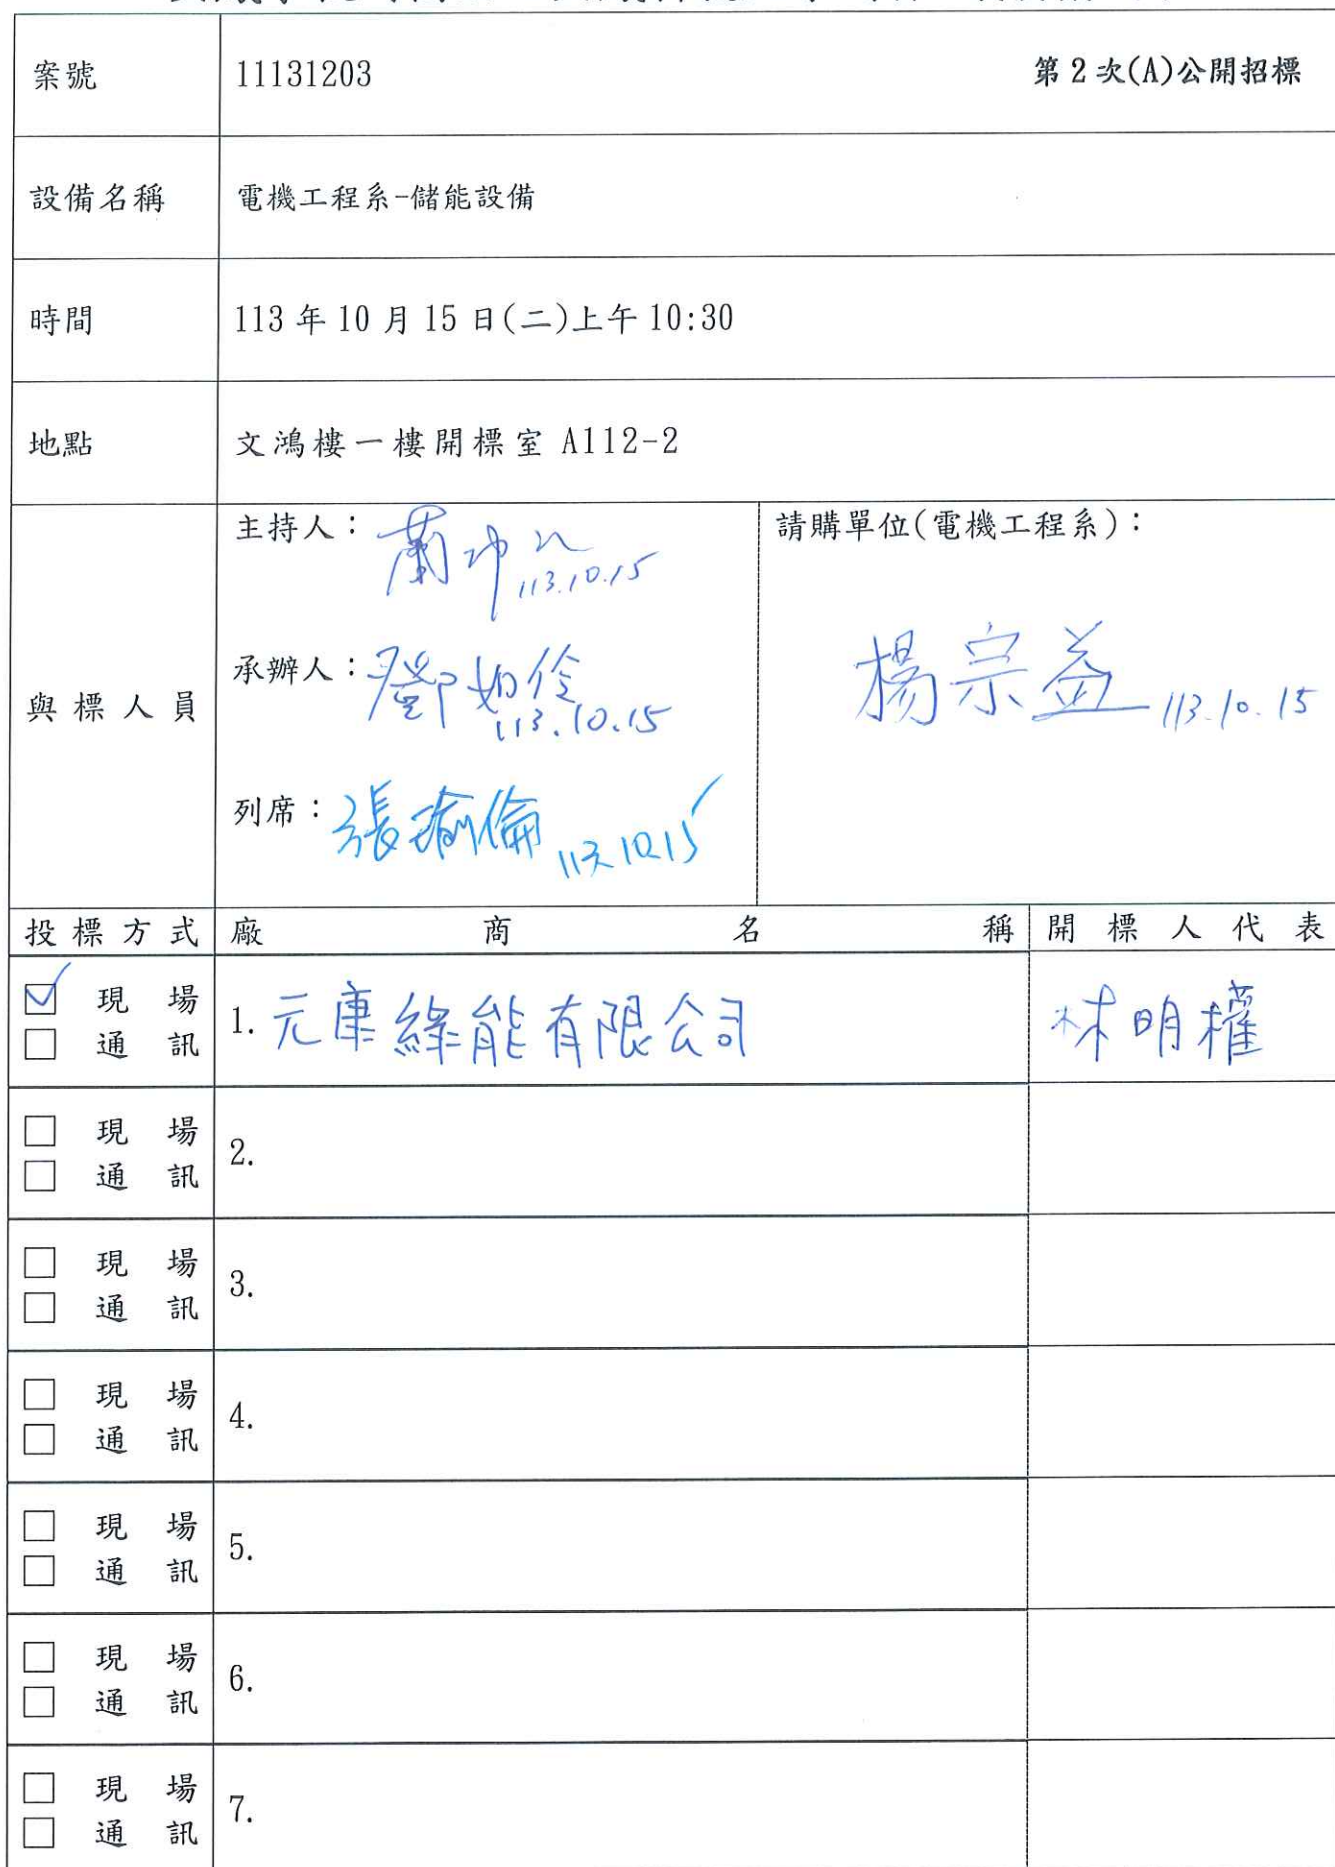 案號 11131203 第2次(A)公開招標
設備名稱 電機工程系-儲能設備
時間 113年10月15日(二)上午10:30
地點 文鴻樓一樓開標室 A112-2
與標人員
主持人：
113.10.15
承辦人：鄧如伶
113.10.15
列席：張瑜倫 113.10.15
請購單位(電機工程系)：
楊宗益 113.10.15
投標方式 廠商名稱 開標人代表
☑ 現場
☐ 通訊
1. 元康綠能有限公司 林明權
☐ 現場
☐ 通訊
2.
☐ 現場
☐ 通訊
3.
☐ 現場
☐ 通訊
4.
☐ 現場
☐ 通訊
5.
☐ 現場
☐ 通訊
6.
☐ 現場
☐ 通訊
7.